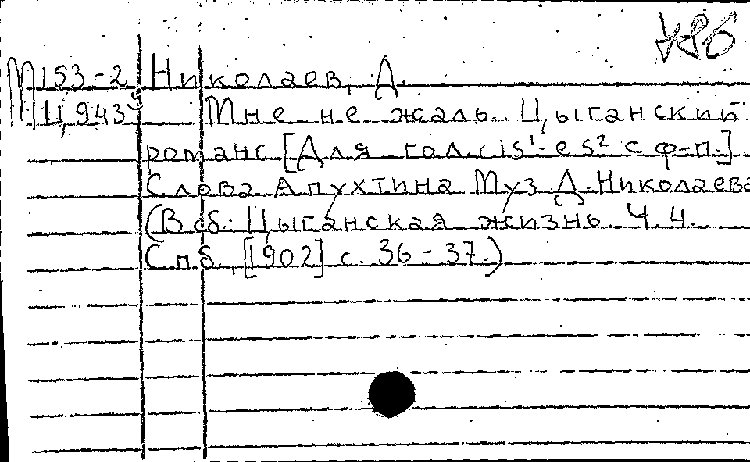 М153-2 Николаев, Д.
Ц943 Мне не жаль. Цыганский
романс. [Для гол. cis¹-es² с ф-п.]
Слова Апухтина Муз. Д. Николаева
(В сб: Цыганская жизнь. Ч. 4.
Спб., [902] с. 36-37.)